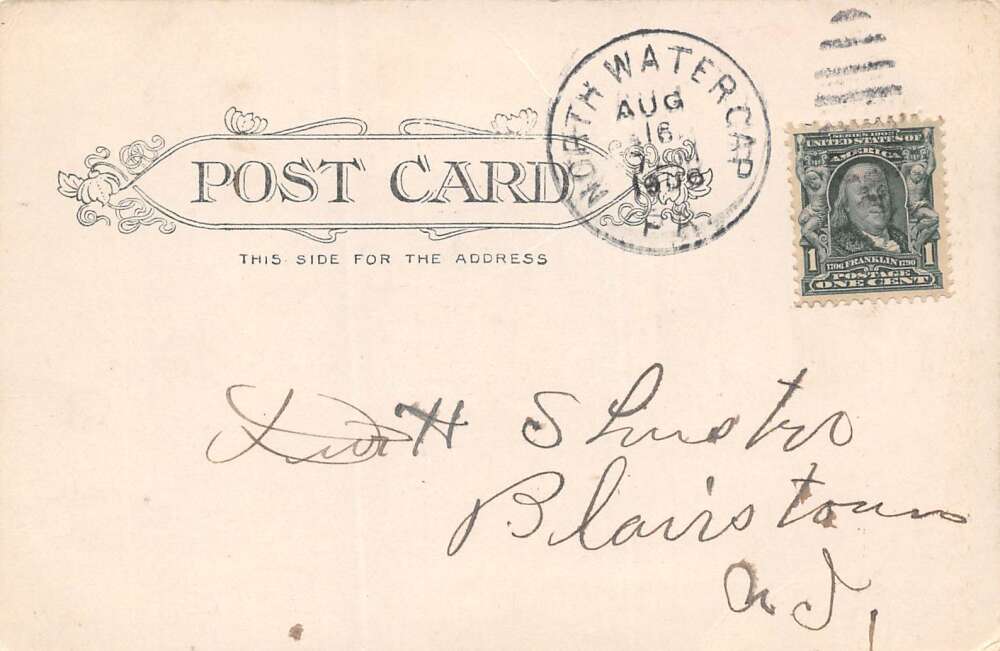 POST CARD
THIS SIDE FOR THE ADDRESS
NORTH WATER GAP
AUG
16
1906
PA.
SERIES 1902
UNITED STATES OF
AMERICA
1 1
1706 FRANKLIN 1790
POSTAGE
ONE CENT
H
Blairstown
N.J.